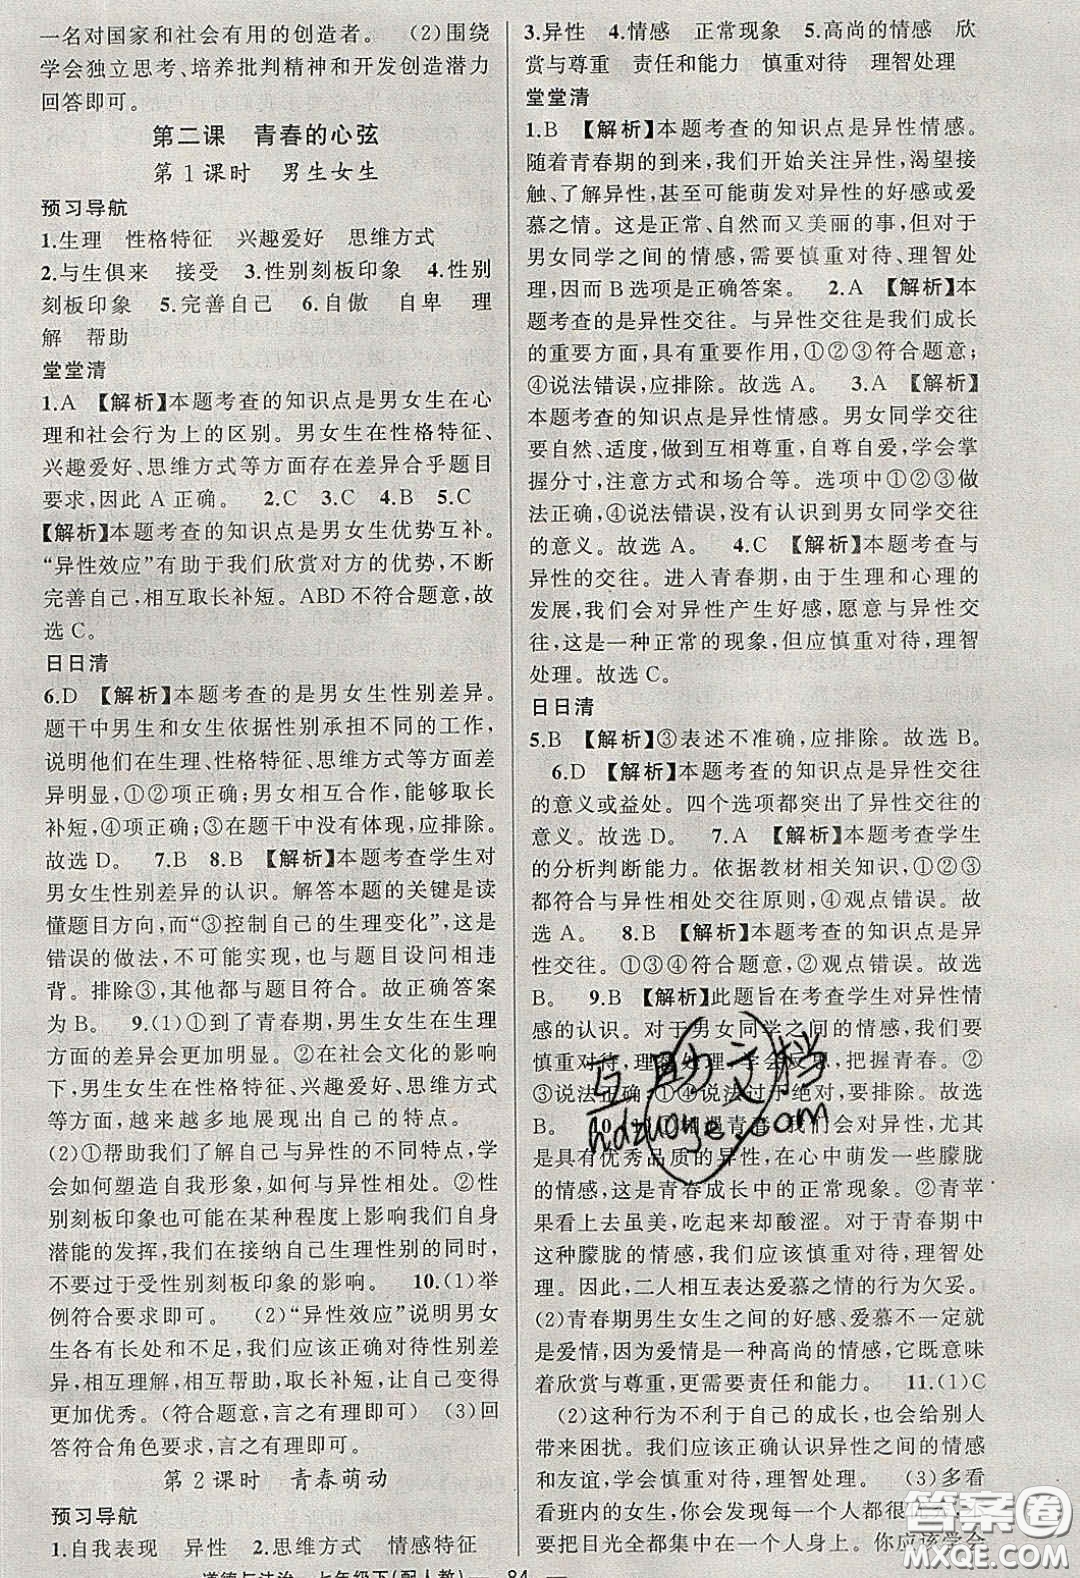 一名对国家和社会有用的创造者。 (2)围绕
学会独立思考、培养批判精神和开发创造潜力
回答即可。
第二课 青春的心弦
第1课时 男生女生
预习导航
1.生理 性格特征 兴趣爱好 思维方式
2.与生俱来 接受 3.性别刻板印象 4.性别
刻板印象 5.完善自己 6.自傲 自卑 理
解 帮助
堂堂清
1.A 【解析】本题考查的知识点是男女生在心
理和社会行为上的区别。男女生在性格特征、
兴趣爱好、思维方式等方面存在差异合乎题目
要求,因此A正确。 2.C 3.C 4.B 5.C
【解析】本题考查的知识点是男女生优势互补。
“异性效应”有助于我们欣赏对方的优势,不断
完善自己,相互取长补短。ABD不符合题意,故
选C。
日日清
6.D 【解析】本题考查的是男女生性别差异。
题干中男生和女生依据性别承担不同的工作,
说明他们在生理、性格特征、思维方式等方面差
异明显,①②项正确;男女相互合作,能够取长
补短,④项正确;③在题干中没有体现,应排除。
故选D。 7.B 8.B 【解析】本题考查学生对
男女生性别差异的认识。解答本题的关键是读
懂题目方向,而“③控制自己的生理变化”,这是
错误的做法,不可取,也与题目设问相违
背。排除③,其他都与题目符合。故正确答案
为B。 9.(1)①到了青春期,男生女生在生理
方面的差异会更加明显。②在社会文化的影响
下,男生女生在性格特征、兴趣爱好、思维方式
等方面,越来越多地展现出自己的特点。
(2)①帮助我们了解男生女生的不同特点,学
会如何塑造自我形象,如何与异性相处。②性
别刻板印象也可能在某种程度上影响我们自身
潜能的发挥,我们在接纳自己生理性别的同时,
不要过于受性别刻板印象的影响。 10.(1)举
例符合要求即可。 (2)“异性效应”说明男女
生各有长处和不足,我们应该正确对待性别差
异,相互理解,相互帮助,取长补短,让自己变得
更加优秀。(符合题意,言之有理即可) (3)回
答符合角色要求,言之有理即可。
第2课时 青春萌动
预习导航
1.自我表现 异性 2.思维方式 情感特征
3.异性 4.情感 正常现象 5.高尚的情感 欣
赏与尊重 责任和能力 慎重对待 理智处理
堂堂清
1.B 【解析】本题考查的知识点是异性情感。
随着青春期的到来,我们开始关注异性,渴望接
触、了解异性,甚至可能萌发对异性的好感或爱
慕之情。这是正常、自然而又美丽的事,但对于
男女同学之间的情感,需要慎重对待、理智处
理,因而B选项是正确答案。 2.A 【解析】本
题考查的是异性交往。与异性交往是我们成长
的重要方面,具有重要作用,①②③符合题意;
④说法错误,应排除。故选A。 3.A 【解析】
本题考查的知识点是异性情感。男女同学交往
要自然、适度,做到互相尊重,自重自爱,学会掌
握分寸,注意方式和场合等。选项中①②③做
法正确,④说法错误,没有认识到男女同学交往
的意义。故选A。 4.C 【解析】本题考查与
异性的交往。进入青春期,由于生理和心理的
发展,我们会对异性产生好感,愿意与异性交
往,这是一种正常的现象,但应慎重对待,理智
处理。故选C。
日日清
5.B 【解析】③表述不准确,应排除。故选B。
6.D 【解析】本题考查的知识点是异性交往
的意义或益处。四个选项都突出了异性交往的
意义。故选D。 7.A 【解析】本题考查学生
的分析判断能力。依据教材相关知识,①②③
都符合与异性相处交往原则,④观点错误。故
选A。 8.B 【解析】本题考查的知识点是异
性交往。①③④符合题意,②观点错误。故选
B。 9.B 【解析】此题旨在考查学生对异性情
感的认识。对于男女同学之间的情感,我们要
慎重对待,理智处理,学会反思,把握青春。②
③说法正确;①④说法过于绝对,要排除。故选
B。 10.(1)①遇青春,我们会对异性,尤其
是具有优秀品质的异性,在心中萌发一些朦胧
的情感,这是青春成长中的正常现象。②青苹
果看上去虽美,吃起来却酸涩。对于青春期中
这种朦胧的情感,我们应该慎重对待,理智处
理。因此,二人相互表达爱慕之情的行为欠妥。
(2)青春期男生女生之间的好感、爱慕不一定就
是爱情,因为爱情是一种高尚的情感,它意味
着欣赏与尊重,更需要责任和能力。 11.(1)C
(2)这种行为不利于自己的成长,也会给别人
带来困扰。我们应该正确认识异性之间的情感
和友谊,学会慎重对待,理智处理。 (3)多看
看班内的女生,你会发现每一个人都很
要把目光全都集中在一个人身上。你应该学会
道德与法治 七年级下(配人教) — 84 —
互助文档
hdzuoye.com
答案圈
MXQE.COM